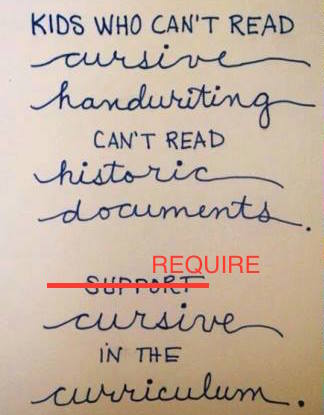 KIDS WHO CAN'T READ
cursive
handwriting
CAN'T READ
historic
documents.
REQUIRE
SUPPORT
cursive
IN THE
curriculum.